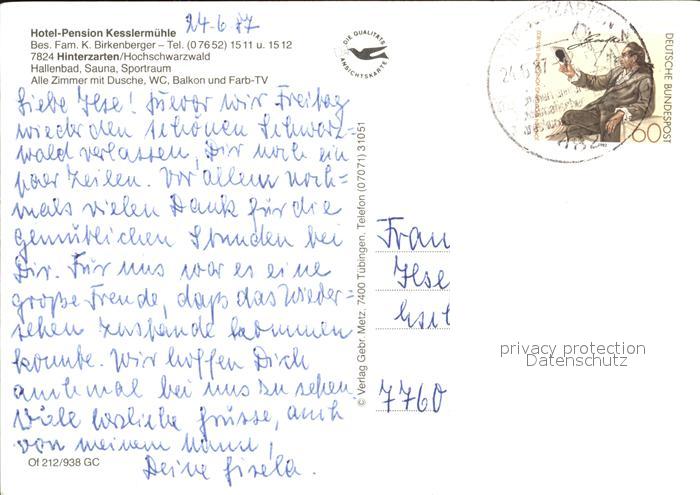 Hotel-Pension Kesslermühle
24.6.87
Bes. Fam. K. Birkenberger – Tel. (0 76 52) 15 11 u. 15 12
7824 Hinterzarten/Hochschwarzwald
Hallenbad, Sauna, Sportraum
Alle Zimmer mit Dusche, WC, Balkon und Farb-TV
Liebe Ilse! Bevor wir Freitag
wieder den schönen Schwarz=
wald verlassen, Dir noch ein
paar Zeilen. Vor allem noch=
mals vielen Dank für die
gemütlichen Stunden bei
Dir. Für uns war es eine
große Freude, daß das Wieder=
sehen zustande kommen
konnte. Wir hoffen Dich
auch mal bei uns zu sehen.
Viele herzliche Grüsse, auch
von meinem Mann,
Deine Gisela.
Of 212/938 GC
DIE QUALITÄTS
ANSICHTSKARTE
© Verlag Gebr. Metz, 7400 Tübingen, Telefon (07071) 31051
24.6.87
DEUTSCHE BUNDESPOST
60
Frau
Ilse
7760
privacy protection
Datenschutz